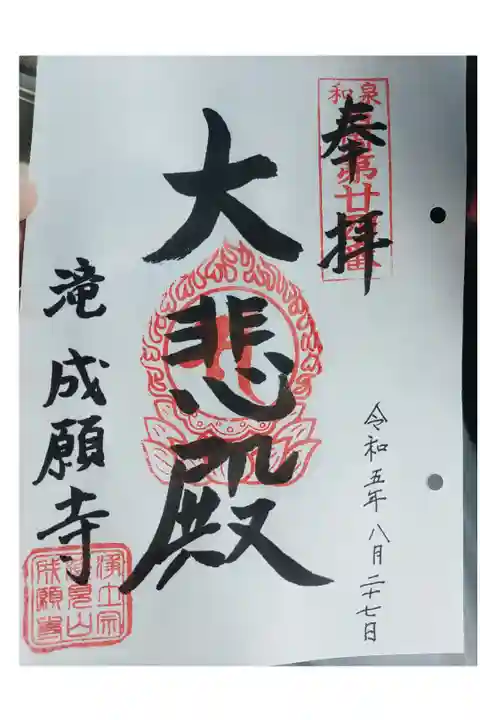 奉拝
和泉
第廿
番
令和五年八月二十七日
大悲殿
滝成願寺
浄土宗
山
成願寺